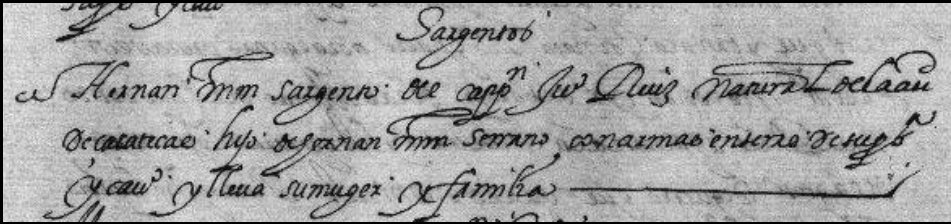 y cavo
Sargentos
Hernan mrn sargento de e capp^n Ju^o Ruiz natural de la ciu
de cacatecas hijo de hernan mrn serrano con armas enteras de su
y cavo y lleva su muger y familia